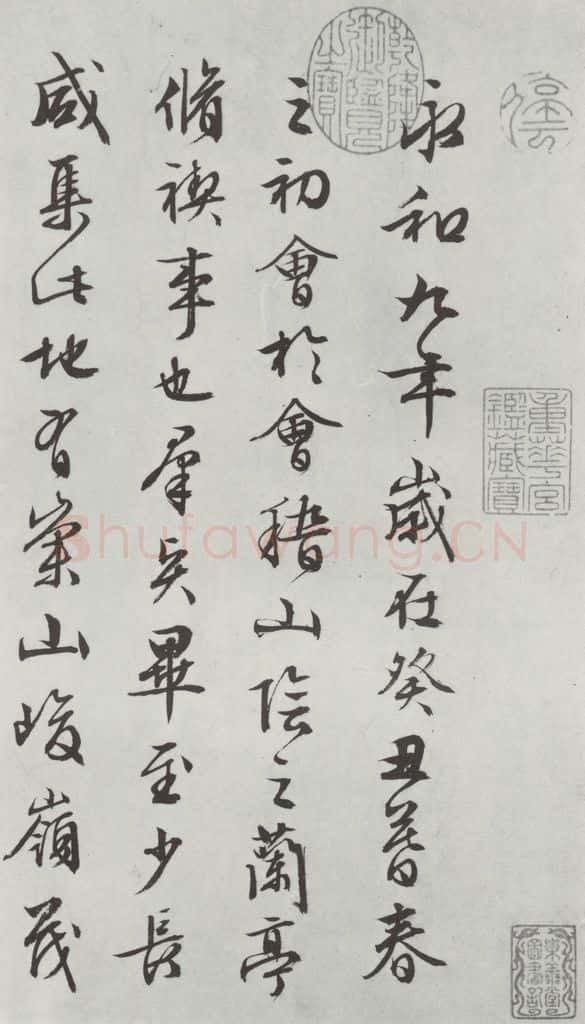 永和九年歲在癸丑暮春
之初會於會稽山陰之蘭亭
脩禊事也羣賢畢至少長
咸集此地有崇山峻嶺茂
乾隆御覽之寶
重華宮鑑藏寶
Shufawang.CN